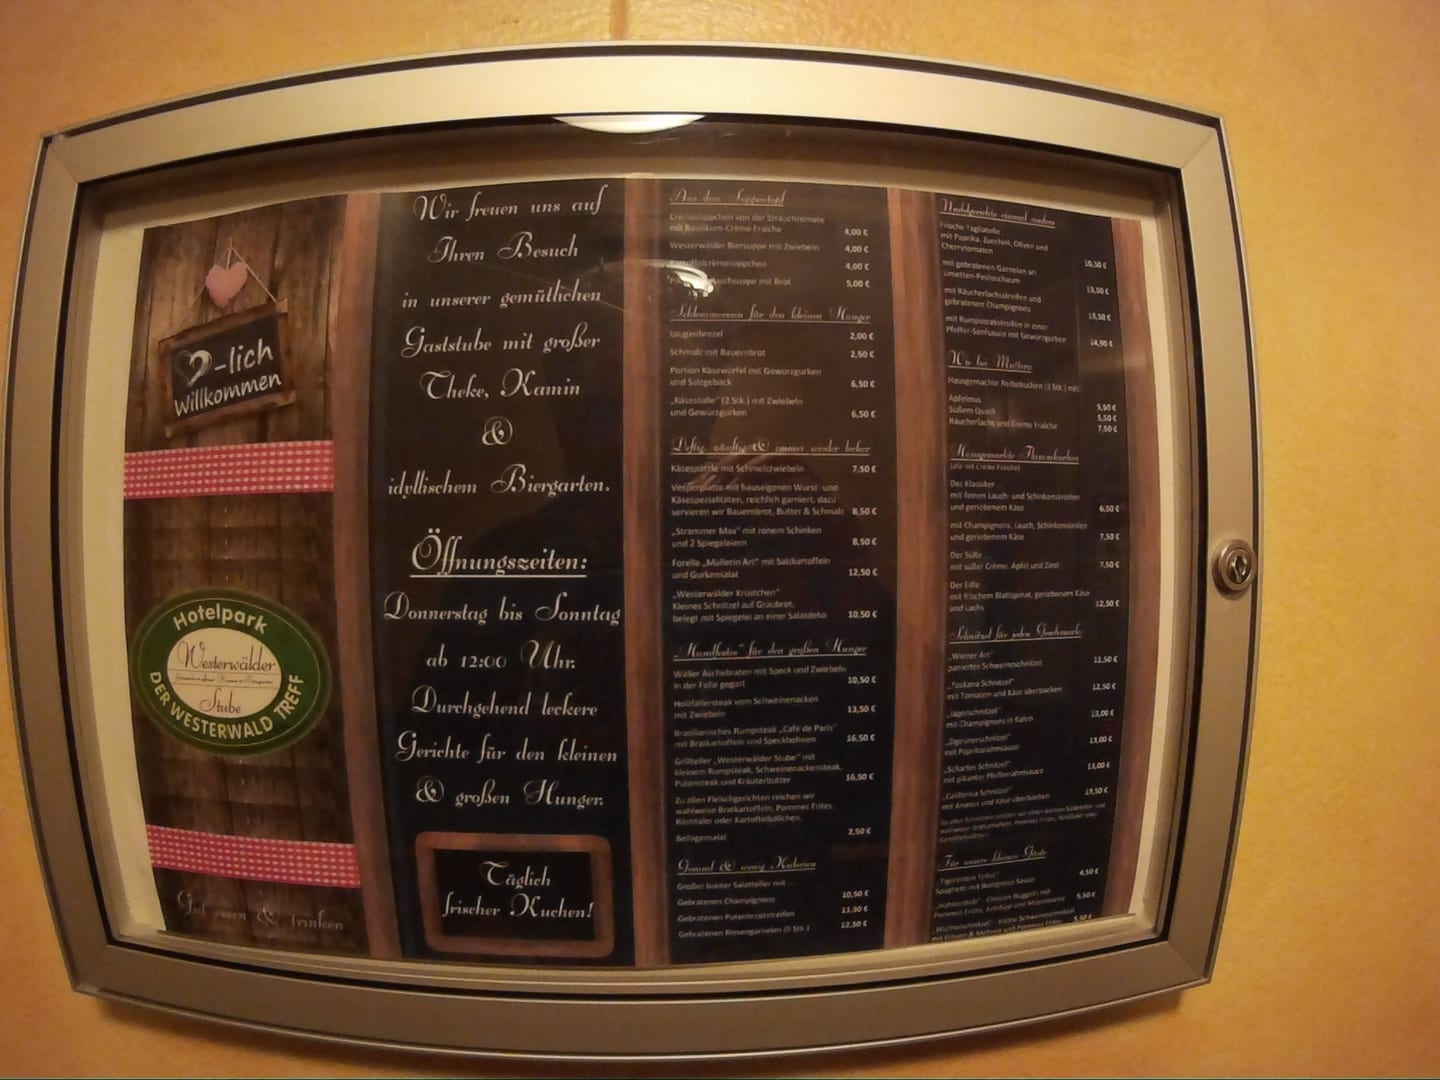 -lich
Willkommen
Hotelpark
Westerwälder
Stube
DER WESTERWALD TREFF
Gut essen & trinken
Wir freuen uns auf
Ihren Besuch
in unserer gemütlichen
Gaststube mit großer
Theke, Kamin
&
idyllischem Biergarten.
Öffnungszeiten:
Donnerstag bis Sonntag
ab 12:00 Uhr.
Durchgehend leckere
Gerichte für den kleinen
& großen Hunger.
Täglich
frischer Kuchen!
Aus dem Suppentopf
Crèmesüppchen von der Strauchtomate
mit Basilikum-Crème Fraîche 4,00 €
Westerwälder Biersuppe mit Zwiebeln 4,00 €
Kartoffelcrèmesüppchen 4,00 €
mit Brot 5,00 €
Schlemmereien für den kleinen Hunger
Laugenbrezel 2,00 €
Schmalz mit Bauernbrot 2,50 €
Portion Käsewürfel mit Gewürzgurken
und Salzgebäck 6,50 €
„Käsestulle“ (2 Stk.) mit Zwiebeln
und Gewürzgurken 6,50 €
Deftig, zünftig & immer wieder lecker
Käsespätzle mit Schmelzzwiebeln 7,50 €
Vesperplatte mit hauseigenen Wurst- und
Käsespezialitäten, reichlich garniert, dazu
servieren wir Bauernbrot, Butter & Schmalz 8,50 €
„Strammer Max“ mit rohem Schinken
und 2 Spiegeleiern 8,50 €
Forelle „Müllerin Art“ mit Salzkartoffeln
und Gurkensalat 12,50 €
„Westerwälder Krüstchen“
Kleines Schnitzel auf Graubrot,
belegt mit Spiegelei an einer Salatdeko 10,50 €
„Handfestes“ für den großen Hunger
Wäller Aschebraten mit Speck und Zwiebeln
in der Folie gegart 10,50 €
Holzfällersteak vom Schweinenacken
mit Zwiebeln 13,50 €
Brasilianisches Rumpsteak „Café de Paris“
mit Bratkartoffeln und Speckbohnen 16,50 €
Grillteller „Westerwälder Stube“ mit
kleinem Rumpsteak, Schweinenackensteak,
Putensteak und Kräuterbutter 16,50 €
Zu allen Fleischgerichten reichen wir
wahlweise Bratkartoffeln, Pommes Frites,
Röstitaler oder Kartoffelbällchen.
Beilagensalat 2,50 €
Gesund & wenig Kalorien
Großer bunter Salatteller mit ...
Gebratenen Champignons 10,50 €
Gebratenen Putenbruststreifen 11,50 €
Gebratenen Riesengarnelen (5 Stk.) 12,50 €
Nudelgerichte einmal anders
Frische Tagliatelle
mit Paprika, Zucchini, Oliven und
Cherrytomaten 10,50 €
mit gebratenen Garnelen an
Limetten-Pestoschaum 13,50 €
mit Räucherlachsstreifen und
gebratenen Champignons 13,50 €
mit Rumpsteakstreifen in einer
Pfeffer-Senfsauce mit Gewürzgurken 14,50 €
Wie bei Muttern
Hausgemachte Reibekuchen (3 Stk.) mit
Apfelmus 5,50 €
Süßem Quark 5,50 €
Räucherlachs und Crème Fraîche 7,50 €
Hausgemachte Flammkuchen
(alle mit Crème Fraîche)
Der Klassiker
mit feinen Lauch- und Schinkenstreifen
und geriebenem Käse 6,50 €
mit Champignons, Lauch, Schinkenstreifen
und geriebenem Käse 7,50 €
Der Süße ...
mit süßer Crème, Apfel und Zimt 7,50 €
Der Edle
mit frischem Blattspinat, geriebenem Käse
und Lachs 12,50 €
Schnitzel für jeden Geschmack
„Wiener Art“
paniertes Schweineschnitzel 12,50 €
„Toskana Schnitzel“
mit Tomaten und Käse überbacken 12,50 €
„Jägerschnitzel“
mit Champignons in Rahm 13,00 €
„Zigeunerschnitzel“
mit Paprikarahmsauce 13,00 €
„Scharfes Schnitzel“
mit pikanter Pfefferrahmsauce 13,00 €
„California Schnitzel“
mit Ananas und Käse überbacken 13,50 €
Zu allen Schnitzeln reichen wir einen kleinen Salatteller und
wahlweise Bratkartoffeln, Pommes Frites, Röstitaler oder
Kartoffelbällchen.
Für unsere kleinen Gäste
„Tigerenten Teller“
Spaghetti mit Bolognese Sauce 4,50 €
Chicken Nuggets mit
Pommes Frites, Ketchup und Mayonnaise 5,50 €
„Wichtelschnitzel“ - kleine Schweineschnitzel
mit Erbsen & Möhren und Pommes Frites 5,50 €